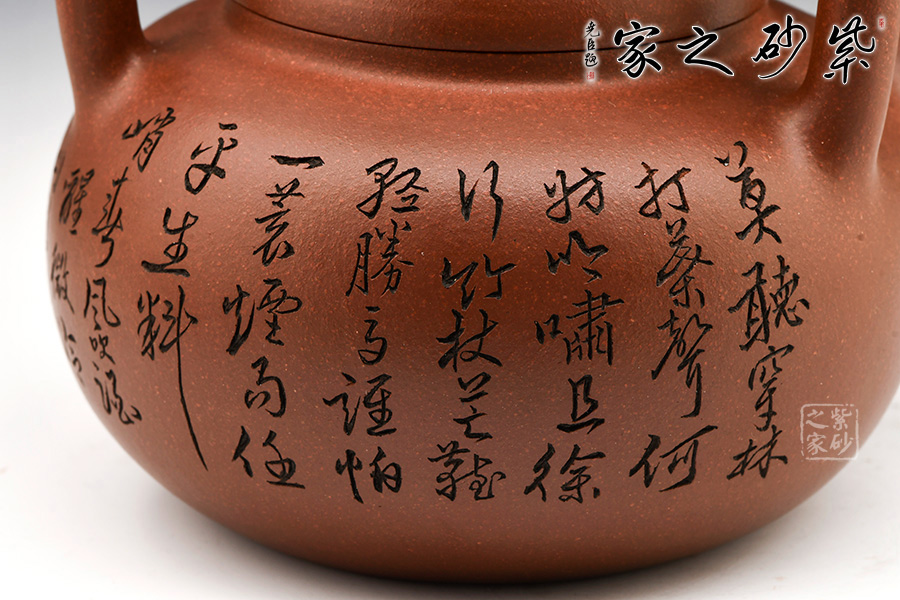 紫砂之家
莫聽穿林
打葉聲何
妨吟嘯且徐
行竹杖芒鞋
輕勝馬誰怕
一蓑煙雨任
平生料
峭春風吹酒
醒微冷
紫砂之家